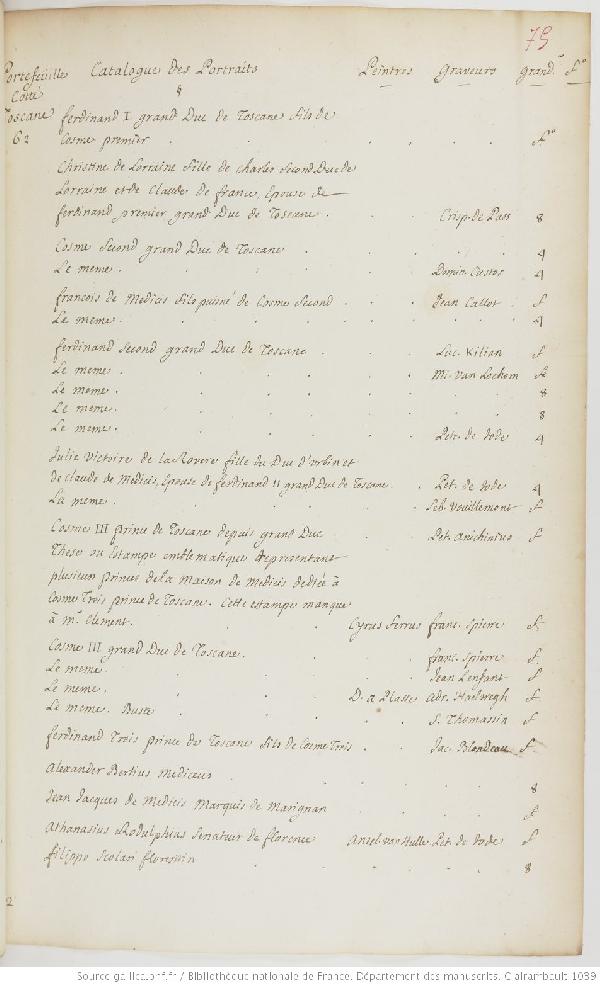 75
Portefeuille Catalogue Des Portraits Peintres Graveurs grand.r f.o
Cotté
Toscane ferdinand I grand Duc de Toscane fils de
62 Cosme premier . . . . . . f.o
Christine de Lorraine fille de charles Second Duc de
Lorraine et de Claude de france, Epouse de
ferdinand premier grand Duc de Toscane . . . Crisp. de Pass 8
Cosme Second grand Duc de Toscane . . . . 4
Le meme . . . . . Domin. Custos 4
francois de Medicis fils puisné de Cosme Second . . . Jean Callot . f
Le meme . . . . . . . 4
ferdinand Second grand Duc de Toscane . . . Luc. Kilian f
Le meme . . . . . Mi. Van Lochem f
Le meme . . . . . . 8
Le meme . . . . . . 8
Le meme . . . . . Pet. de Jode 4
Julie Victoire de la Rovere fille du Duc d'urbin et
de Claude de Medicis, Epouse de ferdinand II grand Duc de Toscane . . Pet. de Jode 4
La meme . . . . . Seb. Vouillemont f
Cosme III prince de Toscane depuis grand Duc . . Pet. Anichinius f
These ou Estampe emblematique representant
plusieurs princes de la Maison de Medicis dediée à
Cosme Trois prince de Toscane. Cette estampe manque
à mr. Clement. . . . Cyrus Ferrus franc. Spierre f.
Cosme III grand Duc de Toscane . . . franc. Spierre f.
Le meme . . . . . Jean Lenfant f
Le meme . . . D. a Plasse Adr. Haelwegh f
Le meme. Buste . . . . S. Thomassin f
ferdinand Trois prince de Toscane fils de Cosme Trois . . Jac. Blondeau f.
Alexander Bertius Mediceus . . . . . 8
Jean Jacques de Medicis Marquis de Marignan . . . . f
Athanasius Rodulphius Senateur de florence Ansel. van Hulle Pet. de Jode f
filippo Scolari florentin . . . . . 8
2
Source gallica.bnf.fr / Bibliothèque nationale de France. Département des manuscrits. Clairambault 1039